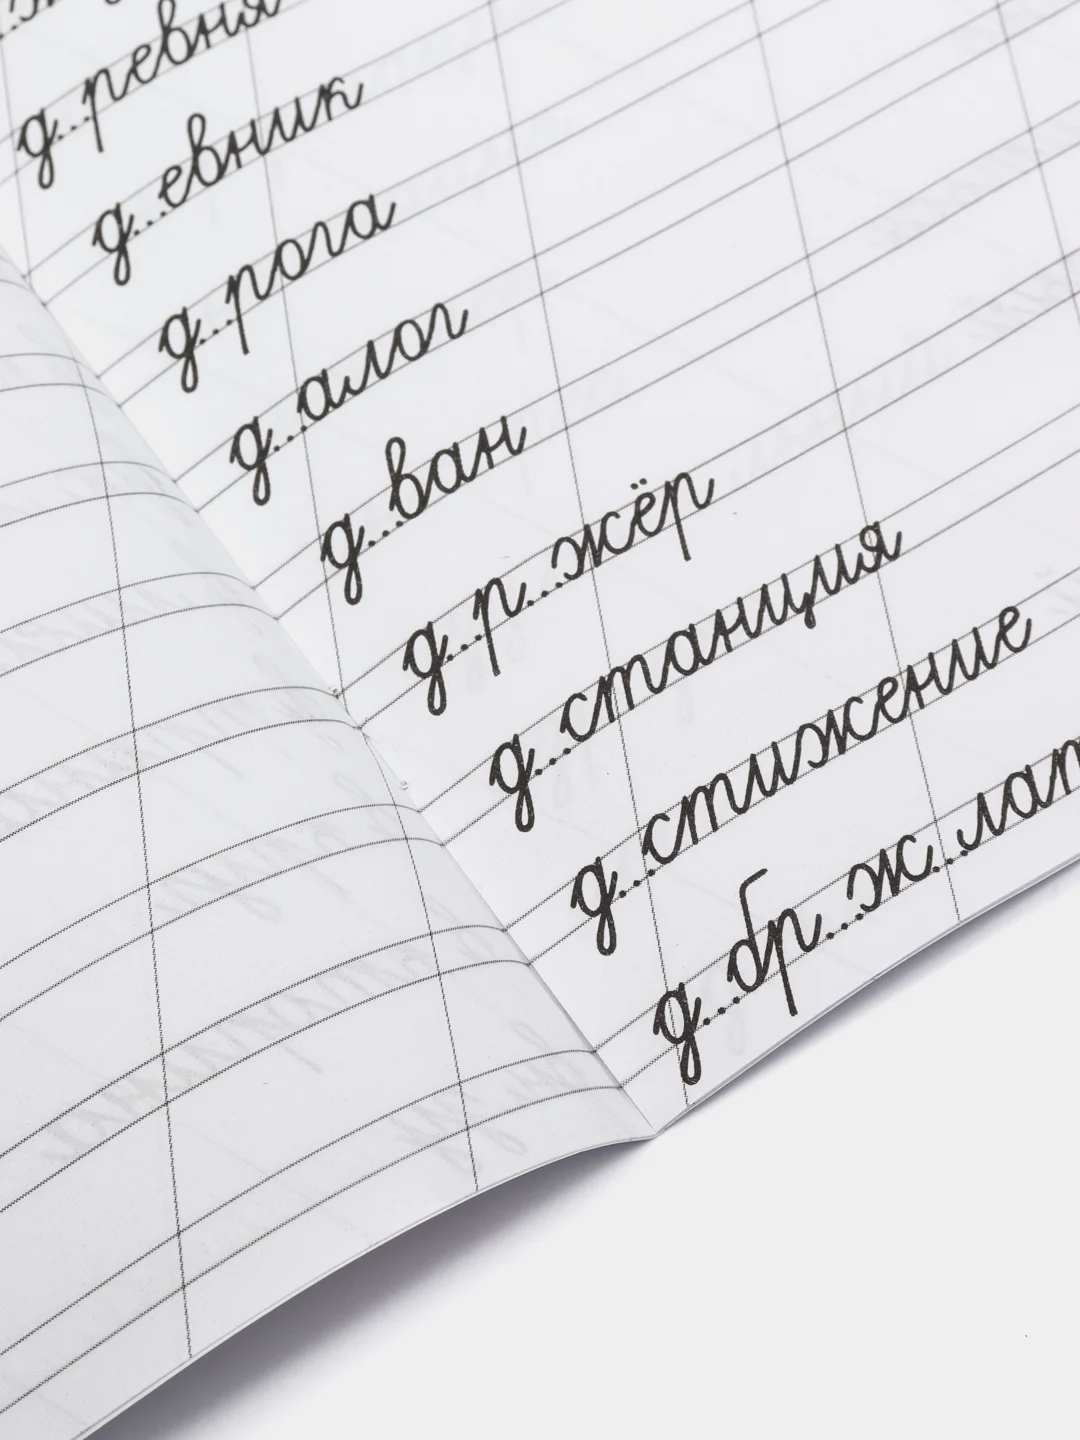 д...ревня
д...евник
д...рога
д...алог
д...ван
д...р...жёр
д...станция
д...стижение
д...бр...ж...лат